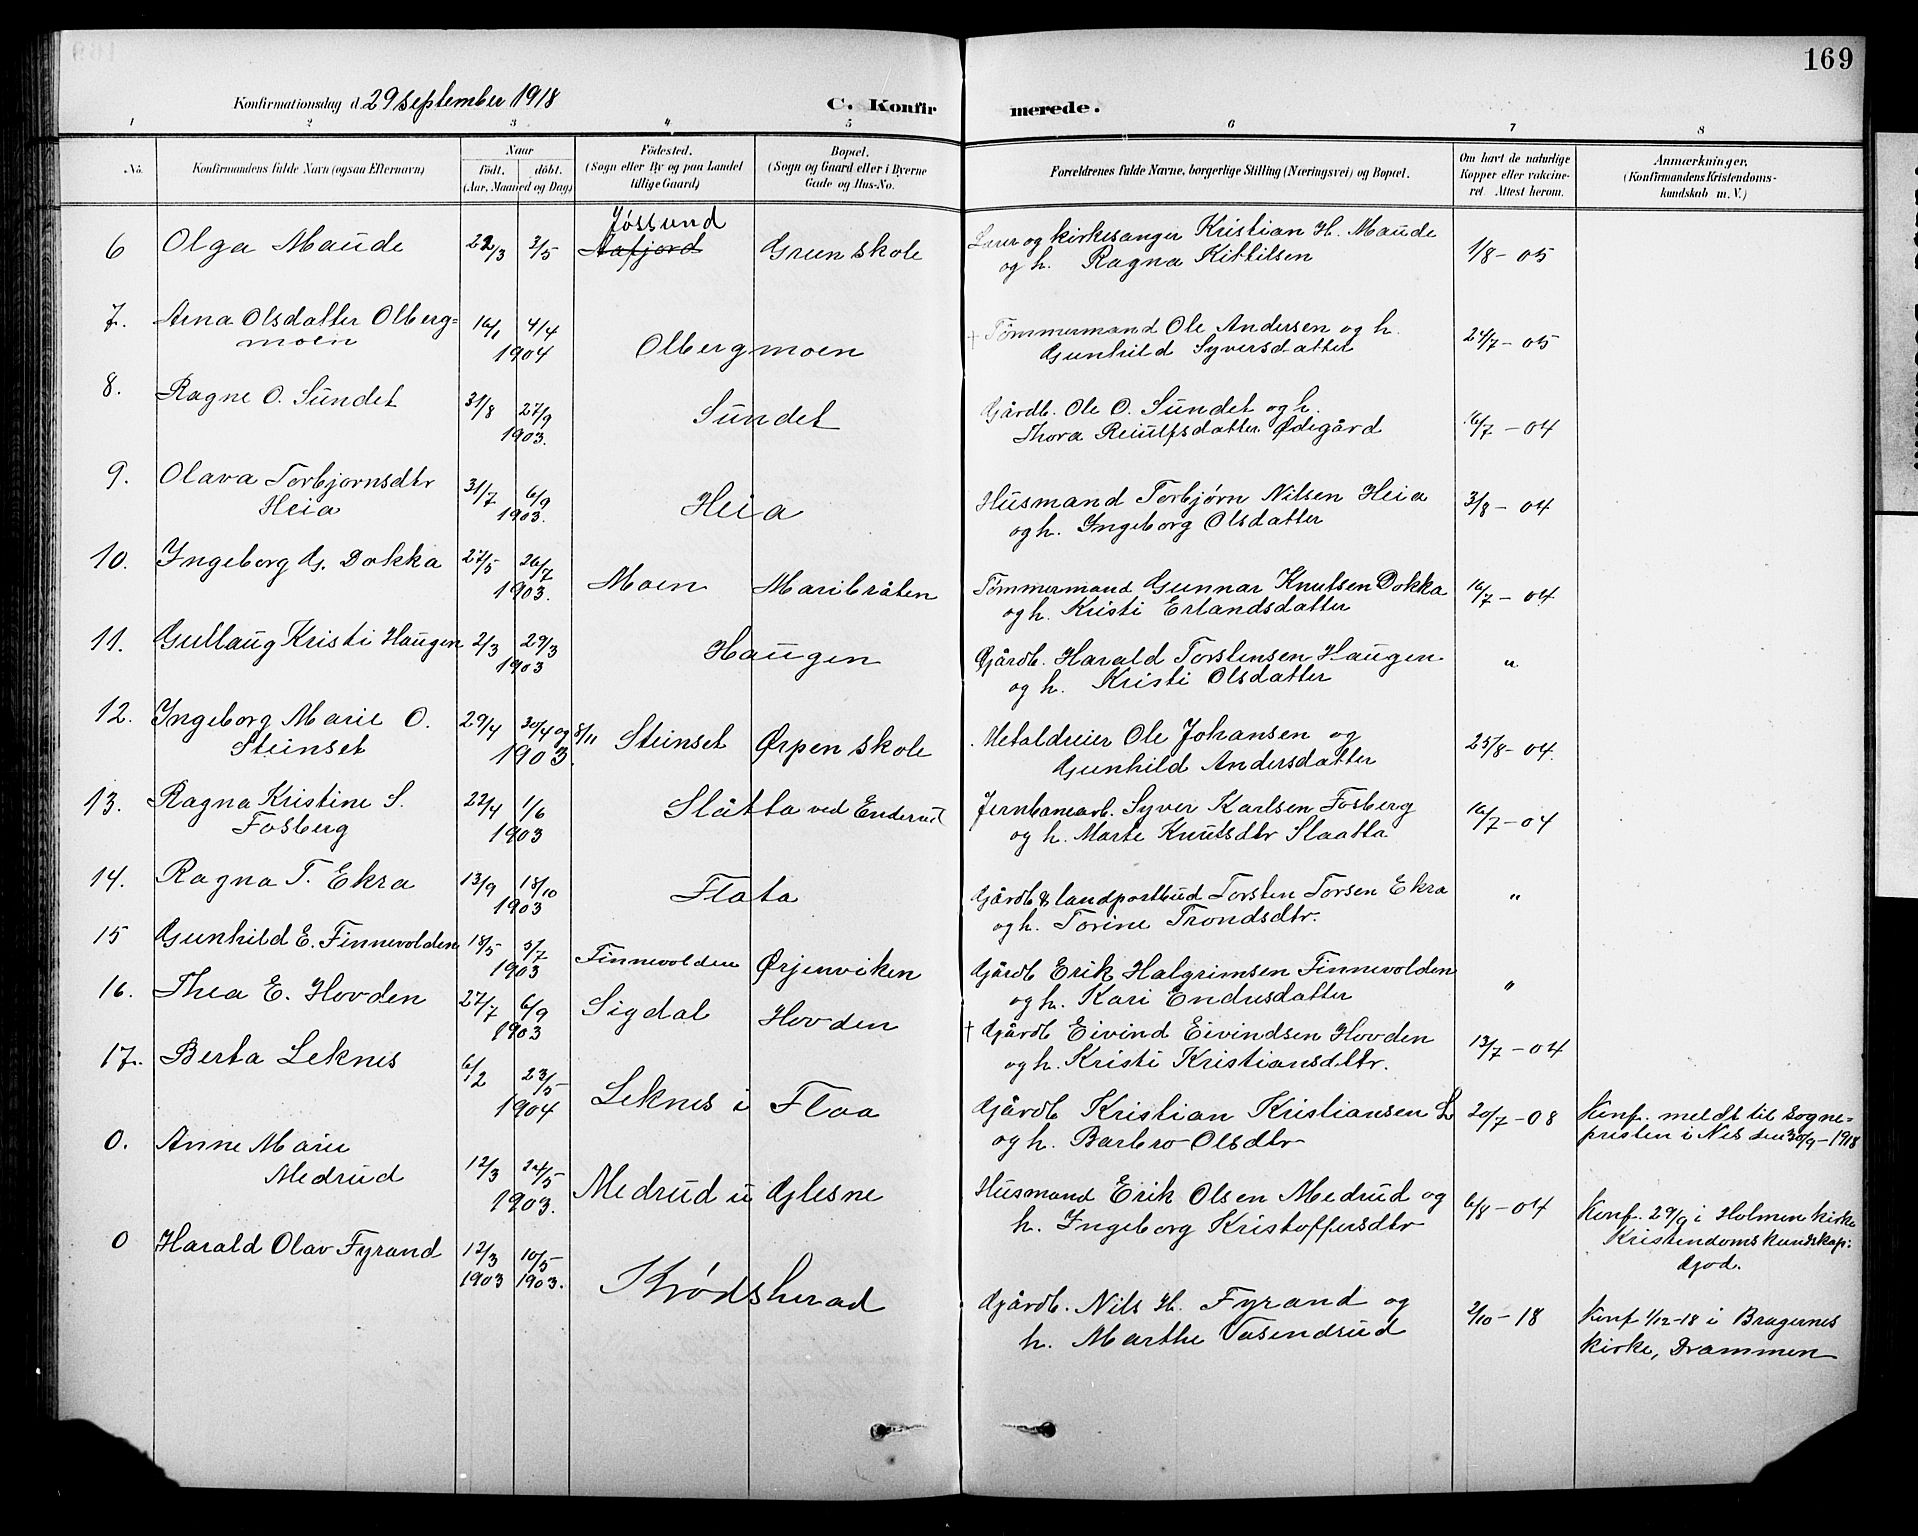 169
Konfirmationsdag d. 29 september 1918
C. Konfirmerede.
1 2 3 4 5 6 7 8
No.
Konfirmandens fulde Navn (ogsaa Efternavn)
Naar
födt. döbt.
(Aar, Maaned og Dag)
Födested.
(Sogn eller By og paa Landet
tillige Gaard)
Bopæl.
(Sogn og Gaard eller i Byerne
Gade og Hus-No.
Forældrenes fulde Navne, borgerlige Stilling (Næringsvei) og Bopæl.
Om havt de naturlige
Kopper eller vakcine-
ret Attest herom.
Anmærkninger.
(Konfirmandens Kristendoms-
kundskab m. V.)
Jøssund
6 Olga Maude 22/3 2/5 Aafjord Green skole Lærer og kirkesanger Kristian H. Maude 1/8 - 05
og h. Ragna Kittilsen
7. Arna Olsdatter Olberg= 16/1 4/4 † Tømmermand Ole Andersen og h. 24/7 - 05
moen 1904 Olbergmoen Gunhild Syversdatter
8. Ragne O. Sundet 31/8 27/9 Sundet Gårdb. Ole O. Sundet og h. 16/7 - 04
1903. Thora Reiulfsdatter Ødegård
9. Olava Torbjørnsdtr 31/7 6/9 Husmand Torbjørn Nilsen Heia 3/8 - 04
Heia 1903. Heia og h. Ingeborg Olsdatter
10. Ingeborg G. Dokka 27/5 26/7 Moen Maribråten Tømmermand Gunnar Knutsen Dokka 16/7 - 04
1903. og h. Kristi Erlandsdatter
11. Gullaug Kristi Haugen 2/3 29/3 Haugen Gårdb. Harald Torstensen Haugen "
1903 og h. Kristi Olsdatter
12. Ingeborg Marie O. 29/4 30/4 og 8/11 Steinset Ørpen skole Metaldreier Ole Johansen og 25/8 - 04.
Steinset 1903. Gunhild Andersdatter
13. Ragna Kristine S. 22/4 1/6 Slåtta ved Enderud Jernbanearb. Syver Karlsen Fosberg 16/7 - 04
Fosberg 1903 og h. Marte Knutsdtr Slaatta
14. Ragna T. Ekra 13/9 18/10 Flata Gårdb & landpostbud Torsten Torsen Ekra "
1903 og h. Torine Trondsdtr.
15 Gunhild E. Finnevolden 18/5 5/7 Finnevolden Ørjenviken Gårdb Erik Halgrimsen Finnevolden "
1903 og h. Kari Endresdatter
16. Thea E. Hovden 27/7 6/9 Sigdal Hovden † Gårdb Eivind Eivindsen Hovden 13/7 - 04
1903 og h. Kristi Kristiansdtr.
17. Berta Leknes 6/2 23/5 Leknes i Floa Gårdb Kristian Kristiansen L 20/7 - 08 Konf. meldt til sogne=
1904 og h. Barbro Olsdtr presten i Nes den 30/9 - 1918
0. Anne Marie 12/3 24/5 Medrud u Glesne Husmand Erik Olsen Medrud og 6/8 - 04 Konf. 29/9 i Holmen kirke
Medrud 1903. h. Ingeborg Kristoffersdtr Kristendomskundskap:
God.
0 Harald Olav Fyrand 12/3 10/5 Krødsherad Gårdb. Nils H. Fyrand og 2/10 - 18 Konf 1/12-18 i Bragernes
1903 1903. h. Marthe Vasendrud kirke, Drammen